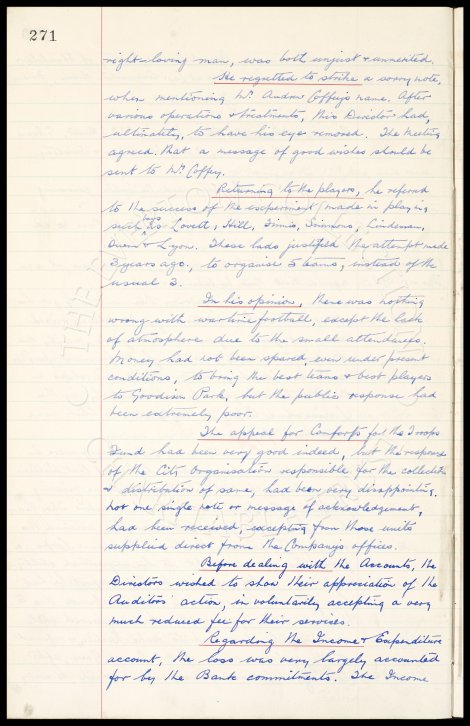 271
right-loving man, was both unjust & unmerited.
He regretted to strike a sorry note,
when mentioning Mr. Andrew Coffey's name. After
various operations & treatments, this Director had,
ultimately, to have his eye removed. The Meeting
agreed that a message of good wishes should be
sent to Mr. Coffey.
Returning to the players, he referred
to the success of the experiment made in playing
such boys as Lovett, Hill, Simmons, Lindeman,
& Lyon. These lads justified the attempt made
3 years ago, to organise 5 teams, instead of the
usual 3.
In his opinion, there was nothing
wrong with wartime football, except the lack
of atmosphere due to the small attendances.
Money had not been spared, even under present
conditions, to bring the best teams & best players
to Goodison Park, but the public response had
been extremely poor.
The appeal for Comforts for the Troops
Fund had been very good indeed, but the response
of the City Organisation responsible for the collection
& distribution of same, had been very disappointing.
Not one single note or message of acknowledgement,
had been received, excepting from those units
supplied direct from the Company's offices.
Before dealing with the Accounts, the
Directors wished to show their appreciation of the
Auditors' action, in voluntarily accepting a very
much reduced fee for their services.
Regarding the Income & Expenditure
account, the loss was very largely accounted
for by the Bank commitments. The Income